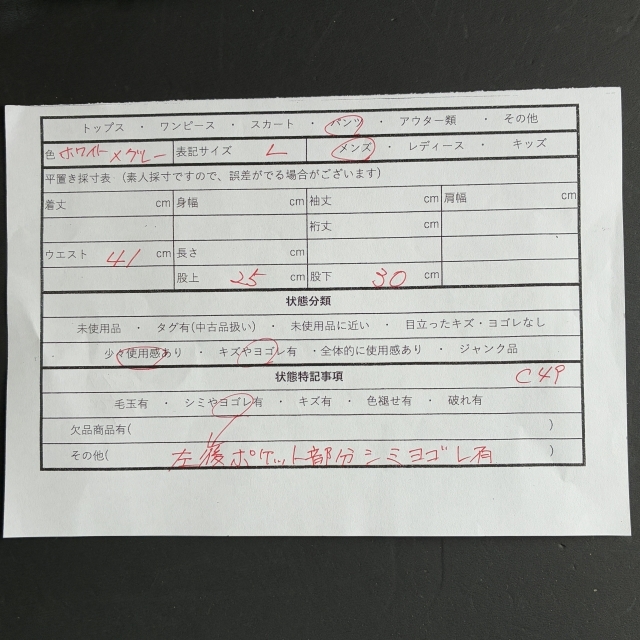 トップス ・ ワンピース ・ スカート ・ パンツ ・ アウター類 ・ その他
色 ホワイト×グレー 表記サイズ L メンズ ・ レディース ・ キッズ
平置き採寸表 (素人採寸ですので、誤差がでる場合がございます)
着丈 cm 身幅 cm 袖丈 cm 肩幅 cm
裄丈 cm
ウエスト 41 cm 長さ cm
股上 25 cm 股下 30 cm
状態分類
未使用品 ・ タグ有(中古品扱い) ・ 未使用品に近い ・ 目立ったキズ・ヨゴレなし
少々使用感あり ・ キズやヨゴレ有 ・全体的に使用感あり ・ ジャンク品
状態特記事項 C49
毛玉有 ・ シミやヨゴレ有 ・ キズ有 ・ 色褪せ有 ・ 破れ有
欠品商品有( )
その他( 左後ポケット部分シミヨゴレ有 )